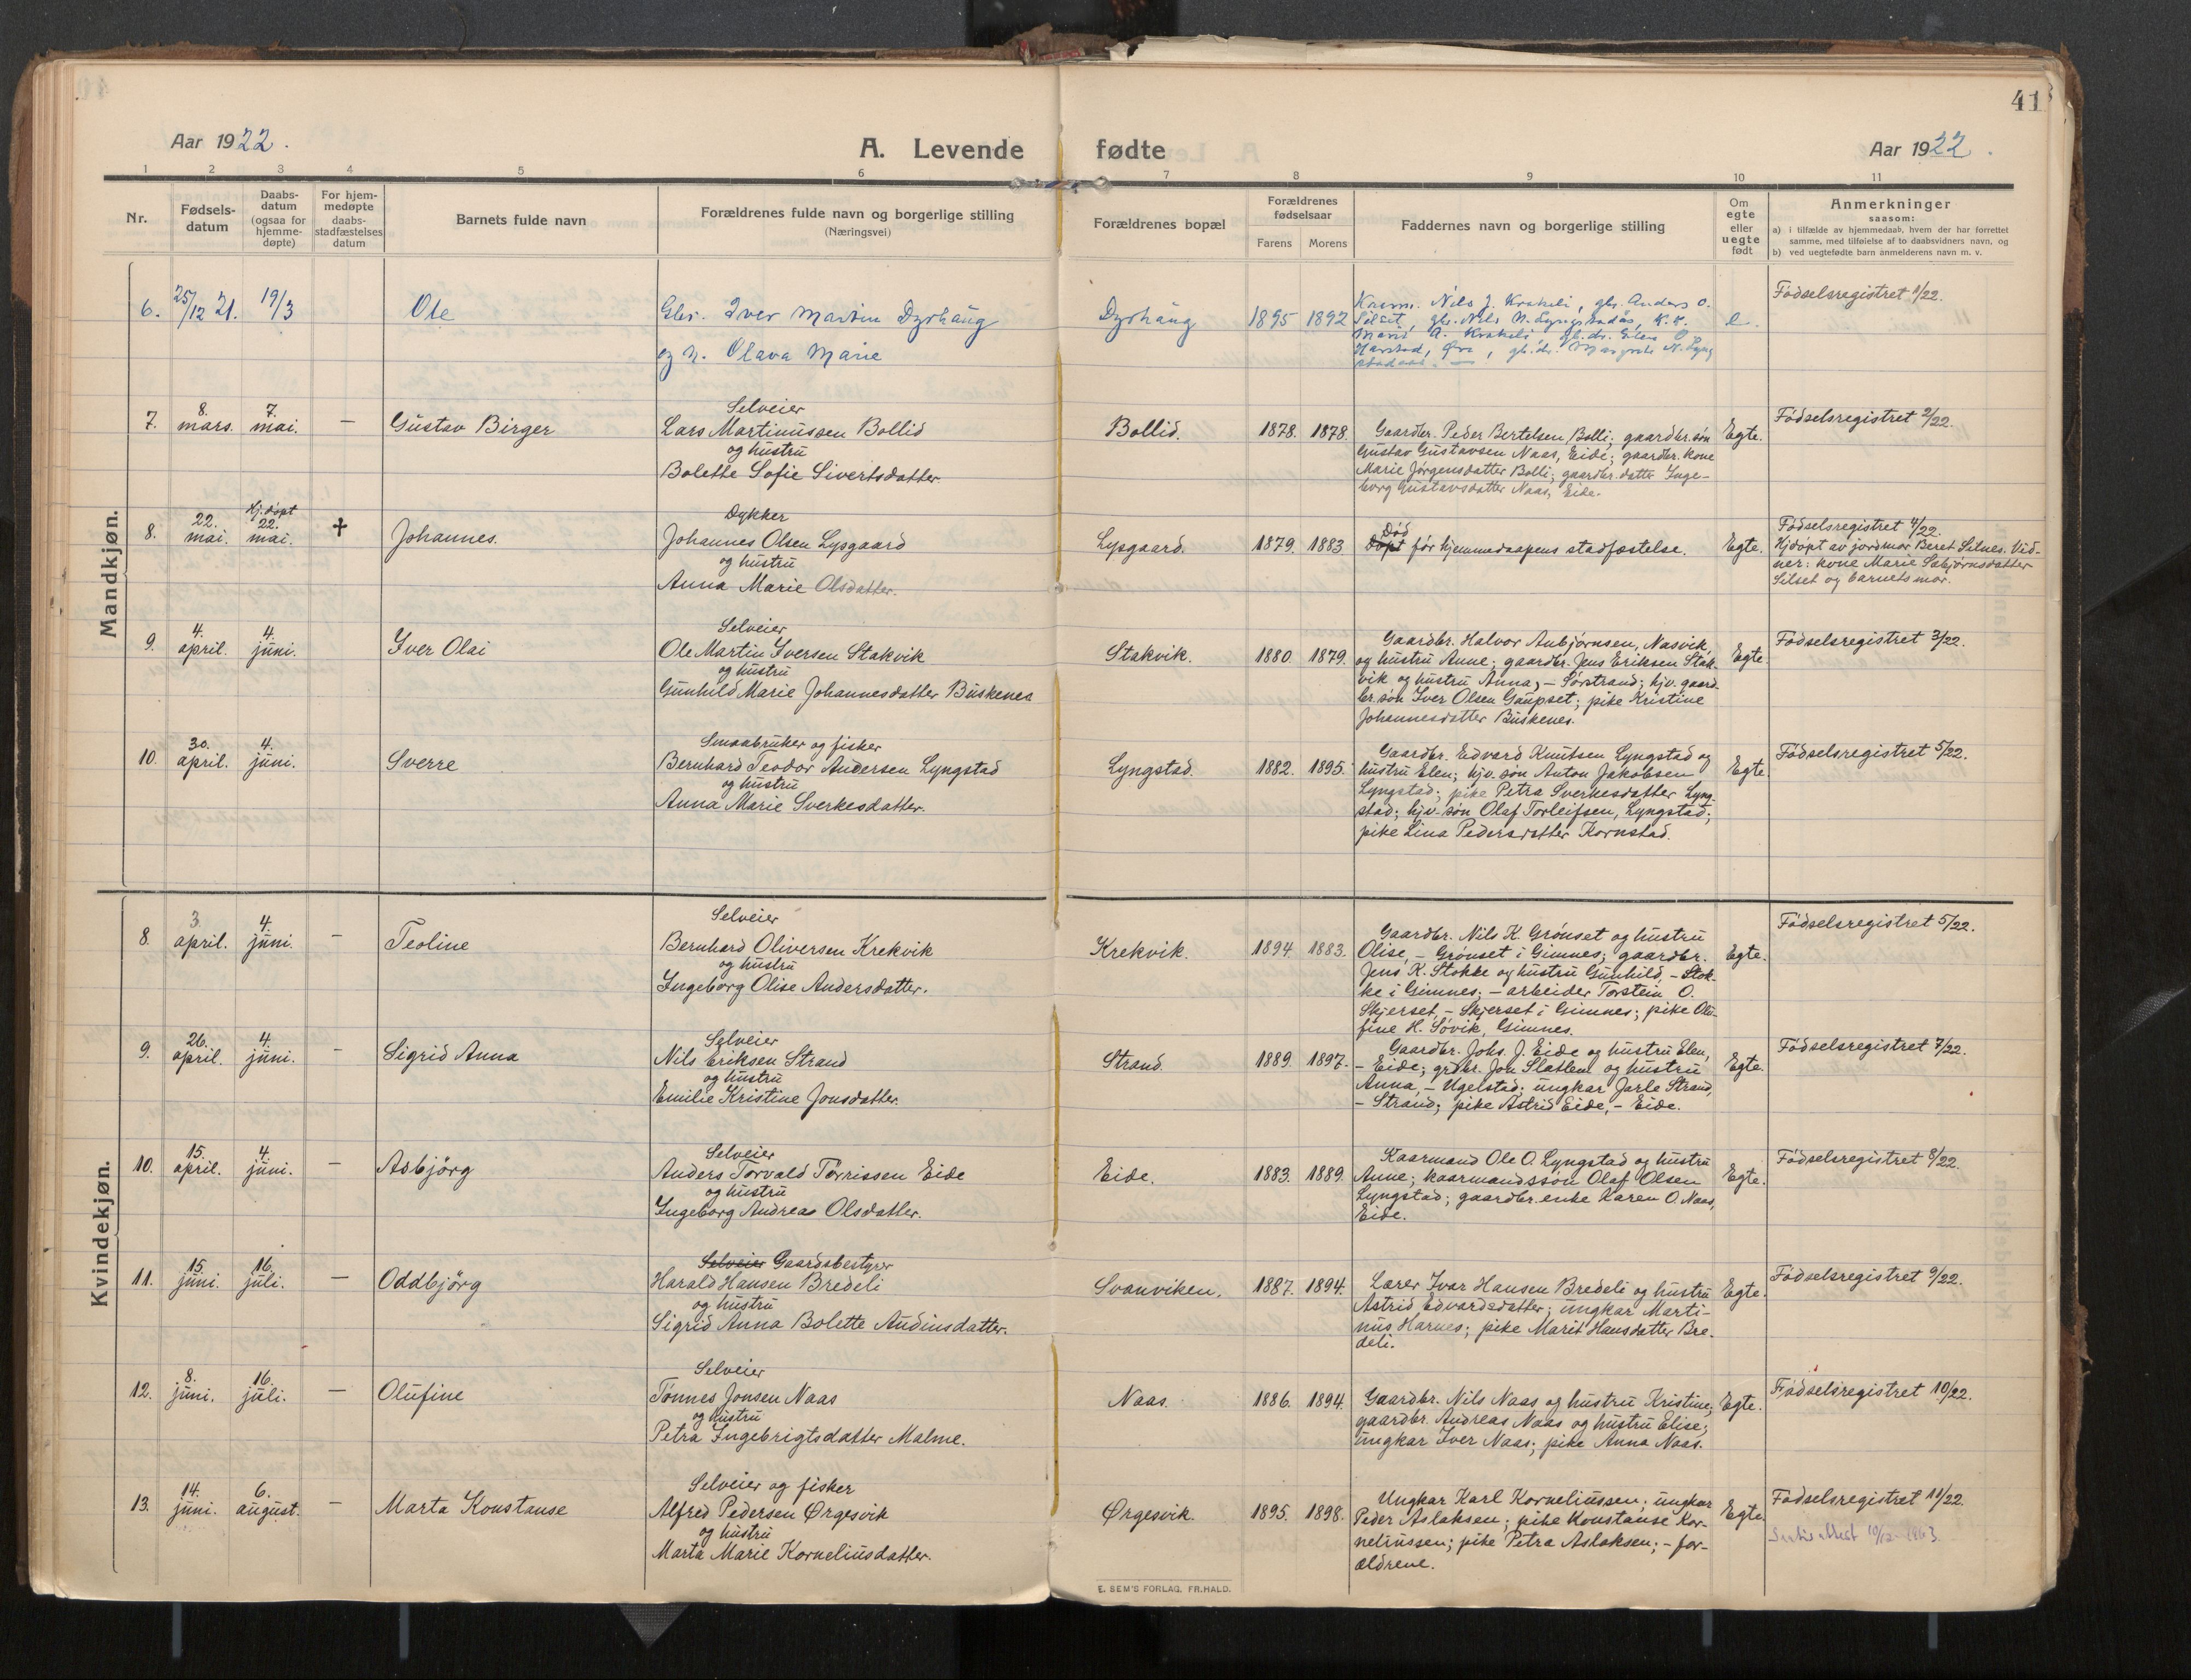 41
Aar 1922.
A. Levende fødte
Aar 1922.
1 2 3 4 5 6 7 8 9 10 11
Nr.
Fødsels-
datum
Daabs-
datum
(ogsaa for
hjemme-
døpte)
For hjem-
medøpte
daabs-
stadfæstelses
datum
Barnets fulde navn
Forældrenes fulde navn og borgerlige stilling
(Næringsvei)
Forældrenes bopæl
Forældrenes
fødselsaar
Farens Morens
Faddernes navn og borgerlige stilling
Om
egte
eller
uegte
født
Anmerkninger
saasom:
a) i tilfælde av hjemmedaab, hvem der har forrettet
samme, med tilføielse af to daabsvidners navn, og
b) ved uegtefødte barn anmelderens navn m. v.
Mandkjøn.
6. 25/12 21. 19/3 Ole
Gbr. Iver Martin Dyrhaug
og h. Olava Marie
Dyrhaug 1895 1892
Kaarm. Nils J. Krakeli, gbr. Anders O.
Silset, gbr. Nils N. Lyngstadås, K.k.
Marit A. Krakeli, gb.dr. Elen O.
Harstad, Øre, gb.dr. Margrete N. Lyng
stadaas.
e.
Fødselsregistret 1/22.
7. 8. mars. 7. mai. — Gustav Birger
Selveier
Lars Martinussen Bollid
og hustru
Bolette Sofie Sivertsdatter.
Bollid. 1878. 1878.
Gaardbr. Peder Bertelsen Bolli; gaardbr. søn
Gustav Gustavsen Naas, Eide; gaardbr. kone
Marie Jørgensdatter Bolli; gaardbr. datter Inge-
borg Gustavsdatter Naas, Eide.
Egte.
Fødselsregistret 2/22.
8. 22. mai. Hj.døpt 22. mai. † Johannes.
Dykker
Johannes Olsen Lysgaard
og hustru
Anna Marie Olsdatter.
Lysgaard. 1879. 1883
Død
Døpt før hjemmedaapens stadfæstelse.
Egte.
Fødselsregistret 4/22.
Hjdøpt av jordmor Beret Silnes. Vid-
ner: kone Marie Sæbjørnsdatter
Silset og barnets mor.
9. 4. april. 4. juni. Iver Olai
Selveier
Ole Martin Iversen Stakvik
og hustru
Gunhild Marie Johannesdatter Buskenes
Stakvik. 1880. 1879.
Gaardbr. Halvor Anbjørnsen, Nasvik,
og hustru Anne; gaardbr. Jens Eriksen Stak-
vik og hustru Anna, – Sørstrand; hjv. gaard-
br. søn Iver Olsen Gaupset; pike Kristine
Johannesdatter Buskenes.
Egte.
Fødselsregistret 3/22.
10. 30. april. 4. juni. Sverre
Smaabruker og fisker
Bernhard Teodor Andersen Lyngstad
og hustru
Anna Marie Sverkesdatter.
Lyngstad. 1882. 1895.
Gaardbr. Edvard Knutsen Lyngstad og
hustru Elen; hjv. søn Anton Jakobsen
Lyngstad; pike Petra Sverkesdatter Lyng-
stad; hjv. søn Olaf Torleifsen, Lyngstad;
pike Lina Pedersdatter Kornstad.
Egte.
Fødselsregistret 5/22.
Kvindekjøn.
8. 3. april. 4. juni. – Teoline
Selveier
Bernhard Oliversen Krekvik
og hustru
Ingeborg Olise Andersdatter.
Krekvik. 1894. 1883.
Gaardbr. Nils K. Grønset og hustru
Olise, – Grønset i Gimnes; gaardbr.
Jens K. Stokke og hustru Gunhild, – Stok-
ke i Gimnes; – arbeider Torstein O.
Skjerset, – Skjerset i Gimnes; pike Olu-
fine H. Søvik, Gimnes.
Egte.
Fødselsregistret 5/22.
9. 26. april. 4. juni. – Sigrid Anna
Selveier
Nils Eriksen Strand
og hustru
Emilie Kristine Jonsdatter.
Strand. 1889. 1897.
Gaardbr. Johs. J. Eide og hustru Elen,
– Eide; grdbr. Jon Slatlem og hustru
Anna, – Ugelstad; ungkar Jarle Strand,
– Strand; pike Astrid Eide, – Eide.
Egte.
Fødselsregistret 7/22.
10. 15. april. 4. juni. – Asbjörg
Selveier
Anders Torvald Tørrissen Eide
og hustru
Ingeborg Andrea Olsdatter.
Eide. 1883. 1889.
Kaarmand Ole O. Lyngstad og hustru
Anne; kaarmandssøn Olaf Olsen
Lyngstad; gaardbr. enke Karen O. Naas,
Eide.
Egte.
Fødselsregistret 8/22.
11. 15. juni. 16. juli. – Oddbjörg
Selveier Gaardsbestyrer
Harald Hansen Bredeli
og hustru
Sigrid Anna Bolette Audunsdatter.
Svanviken. 1887. 1894.
Lærer Ivar Hansen Bredeli og hustru
Astrid Edvardsdatter; ungkar Marti-
nus Harnes; pike Marit Hansdatter Bre-
deli.
Egte.
Fødselsregistret 9/22.
12. 8. juni. 16. juli. – Olufine
Selveier
Tønnes Jonsen Naas
og hustru
Petra Ingebrigtsdatter Malme.
Naas. 1886. 1894.
Gaardbr. Nils Naas og hustru Kristine;
gaardbr. Andreas Naas og hustru Elise;
ungkar Iver Naas; pike Anna Naas.
Egte.
Fødselsregistret 10/22.
13. 14. juni. 6. august. – Marta Konstanse
Selveier og fisker
Alfred Pedersen Ørgesvik
og hustru
Marta Marie Korneliusdatter.
Ørgesvik. 1895. 1898.
Ungkar Karl Korneliussen; ungkar
Peder Aslaksen; pike Konstanse Kor-
neliussen; pike Petra Aslaksen; – for-
ældrene.
Egte.
Fødselsregistret 11/22.
E. SEM'S FORLAG. FR.HALD.